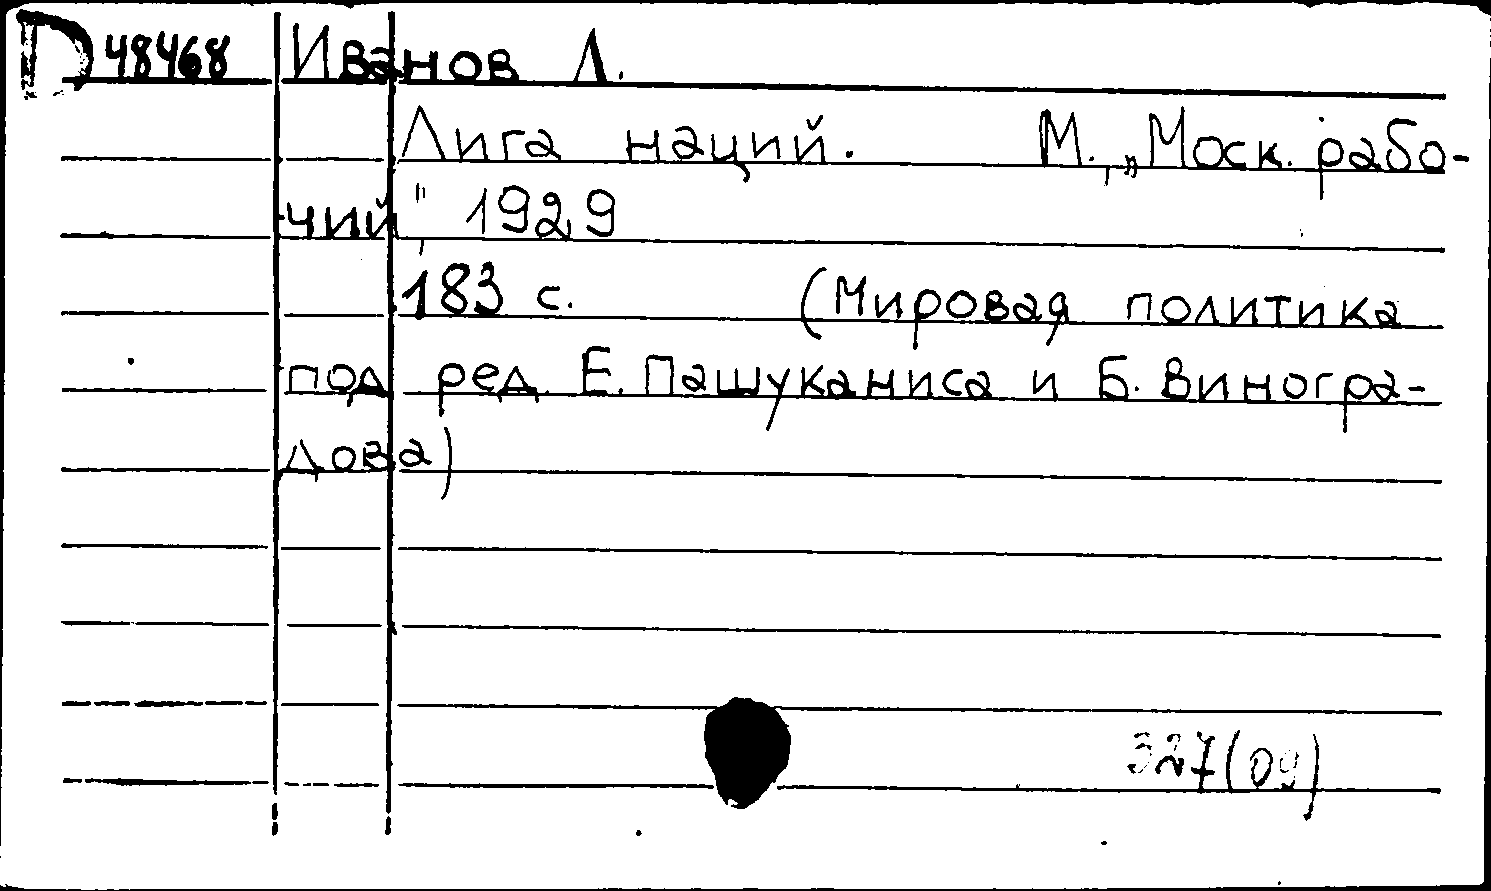 D 48468 Иванов Л.
Лига наций. М., „Моск. рабо-
чий", 1929
183 с. (Мировая политика
под ред. Е. Пашуканиса и Б. Виногра-
дова)
327(09)